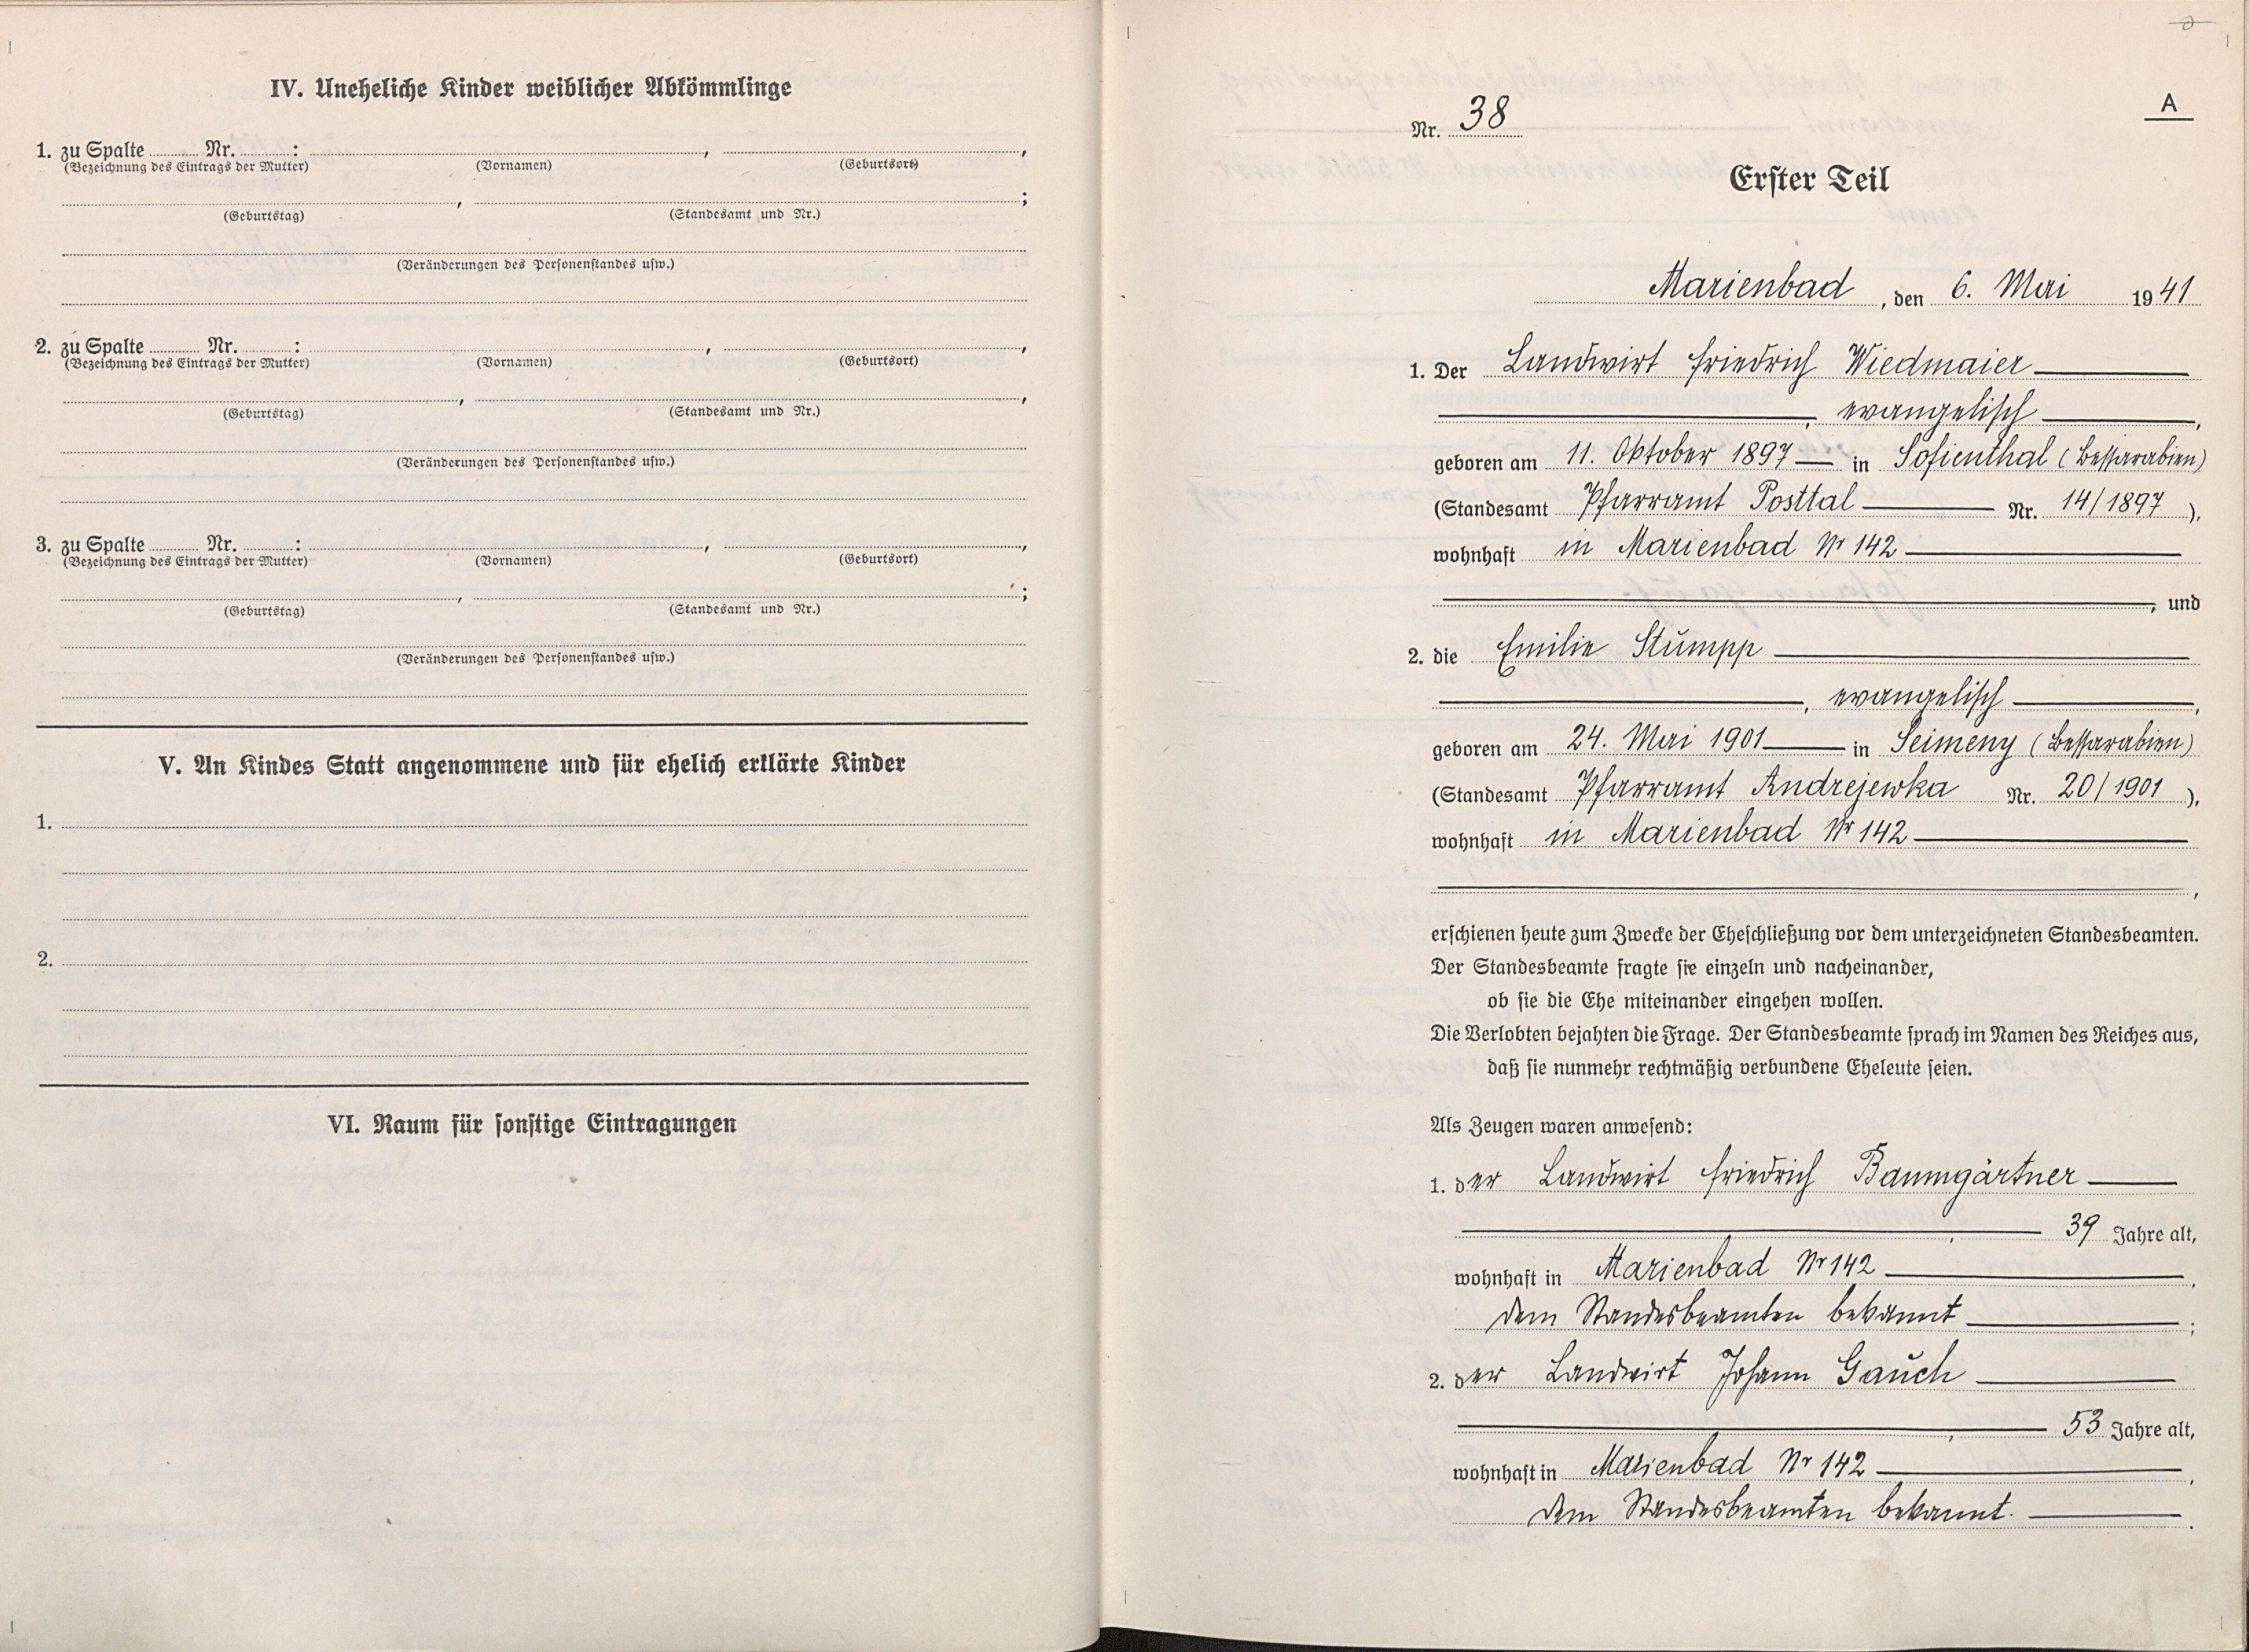 IV. Uneheliche Kinder weiblicher Abkömmlinge
1. zu Spalte ........ Nr. ........ : ........, ........,
(Bezeichnung des Eintrags der Mutter) (Vornamen) (Geburtsort)
........, ........;
(Geburtstag) (Standesamt und Nr.)
(Veränderungen des Personenstandes usw.)
2. zu Spalte ........ Nr. ........ : ........, ........,
(Bezeichnung des Eintrags der Mutter) (Vornamen) (Geburtsort)
........, ........,
(Geburtstag) (Standesamt und Nr.)
(Veränderungen des Personenstandes usw.)
3. zu Spalte ........ Nr. ........ : ........, ........,
(Bezeichnung des Eintrags der Mutter) (Vornamen) (Geburtsort)
........, ........;
(Geburtstag) (Standesamt und Nr.)
(Veränderungen des Personenstandes usw.)
V. An Kindes Statt angenommene und für ehelich erklärte Kinder
1.
2.
VI. Raum für sonstige Eintragungen
A
Nr. 38
Erster Teil
Marienbad, den 6. Mai 1941
1. Der Landwirt Friedrich Wiedmaier
, evangelisch,
geboren am 11. Oktober 1897 in Sofienthal (Bessarabien)
(Standesamt Pfarramt Posttal Nr. 14/1897),
wohnhaft in Marienbad Nr 142
, und
2. die Emilie Stumpp
, evangelisch,
geboren am 24. Mai 1901 in Seimeny (Bessarabien)
(Standesamt Pfarramt Andrejewka Nr. 20/1901),
wohnhaft in Marienbad Nr 142
,
erschienen heute zum Zwecke der Eheschließung vor dem unterzeichneten Standesbeamten.
Der Standesbeamte fragte sie einzeln und nacheinander,
ob sie die Ehe miteinander eingehen wollen.
Die Verlobten bejahten die Frage. Der Standesbeamte sprach im Namen des Reiches aus,
daß sie nunmehr rechtmäßig verbundene Eheleute seien.
Als Zeugen waren anwesend:
1. der Landwirt Friedrich Baumgärtner
, 39 Jahre alt,
wohnhaft in Marienbad Nr 142,
dem Standesbeamten bekannt;
2. der Landwirt Johann Gauch
, 53 Jahre alt,
wohnhaft in Marienbad Nr 142,
dem Standesbeamten bekannt.